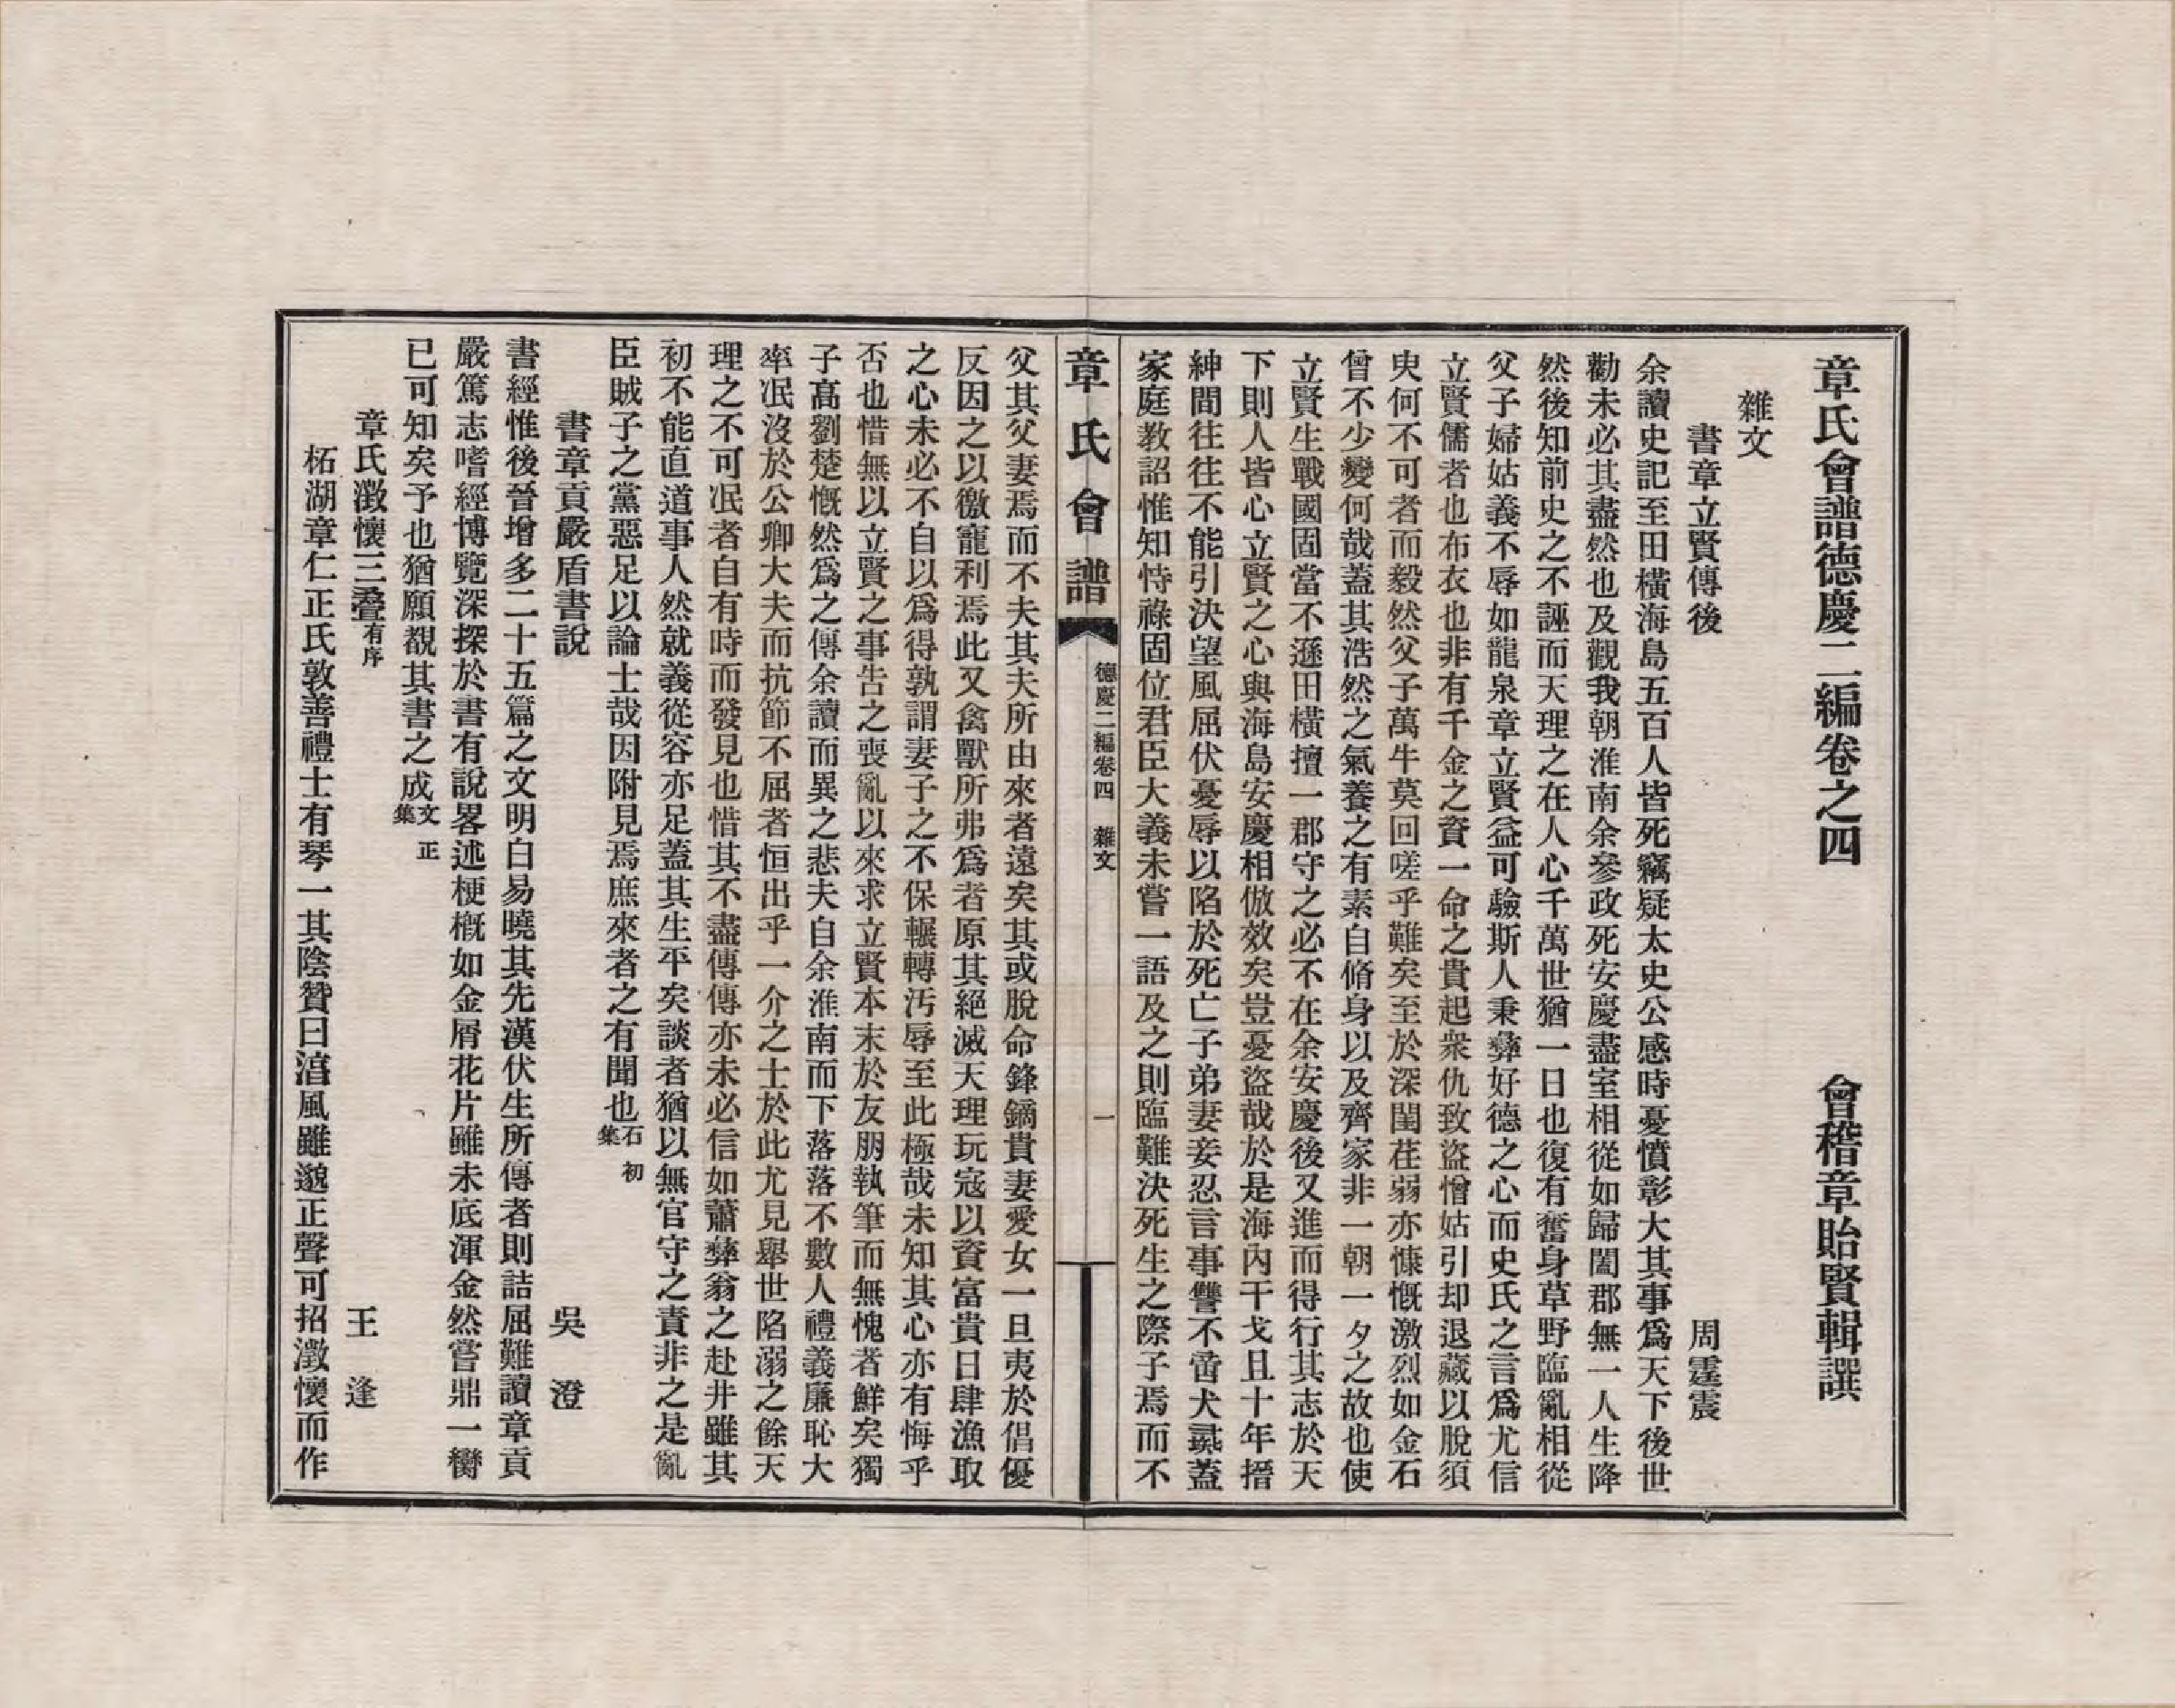 章氏會譜德慶二編卷之四　會稽章貽賢輯譔
雜文
書章立賢傳後　周霆震
余讀史記至田橫海島五百人皆死竊疑太史公感時憂憤彰大其事爲天下後世
勸未必其盡然也及觀我朝淮南余參政死安慶盡室相從如歸闔郡無一人生降
然後知前史之不誣而天理之在人心千萬世猶一日也復有奮身草野臨亂相從
父子婦姑義不辱如龍泉章立賢益可驗斯人秉彝好德之心而史氏之言爲尤信
立賢儒者也布衣也非有千金之資一命之貴起衆仇致盜憎姑引却退藏以脫須
臾何不可者而毅然父子萬牛莫回嗟乎難矣至於深閨荏弱亦慷慨激烈如金石
曾不少變何哉蓋其浩然之氣養之有素自脩身以及齊家非一朝一夕之故也使
立賢生戰國固當不遜田橫擅一郡守之必不在余安慶後又進而得行其志於天
下則人皆心立賢之心與海島安慶相倣效矣豈憂盜哉於是海內干戈且十年搢
紳間往往不能引決望風屈伏憂辱以陷於死亡子弟妻妾忍言事讐不啻犬彘蓋
家庭教詔惟知恃祿固位君臣大義未嘗一語及之則臨難決死生之際子焉而不
章氏會譜　德慶二編卷四　雜文　一
父其父妻焉而不夫其夫所由來者遠矣其或脫命鋒鏑貴妻愛女一旦夷於倡優
反因之以徼寵利焉此又禽獸所弗爲者原其絕滅天理玩寇以資富貴日肆漁取
之心未必不自以爲得孰謂妻子之不保輾轉汚辱至此極哉未知其心亦有悔乎
否也惜無以立賢之事告之喪亂以來求立賢本末於友朋執筆而無愧者鮮矣獨
子高劉楚慨然爲之傳余讀而異之悲夫自余淮南而下落落不數人禮義廉恥大
率泯沒於公卿大夫而抗節不屈者恒出乎一介之士於此尤見舉世陷溺之餘天
理之不可泯者自有時而發見也惜其不盡傳傳亦未必信如蕭彝翁之赴井雖其
初不能直道事人然就義從容亦足蓋其生平矣談者猶以無官守之責非之是亂
臣賊子之黨惡足以論士哉因附見焉庶來者之有聞也石初集
書章貢嚴盾書說　吳澄
書經惟後晉增多二十五篇之文明白易曉其先漢伏生所傳者則詰屈難讀章貢
嚴篤志嗜經博覽深探於書有說畧述梗概如金屑花片雖未底渾金然嘗鼎一臠
已可知矣予也猶願覩其書之成文正集
章氏澂懷三疊有序　王逢
柘湖章仁正氏敦善禮士有琴一其陰贊曰湻風雖邈正聲可招澂懷而作